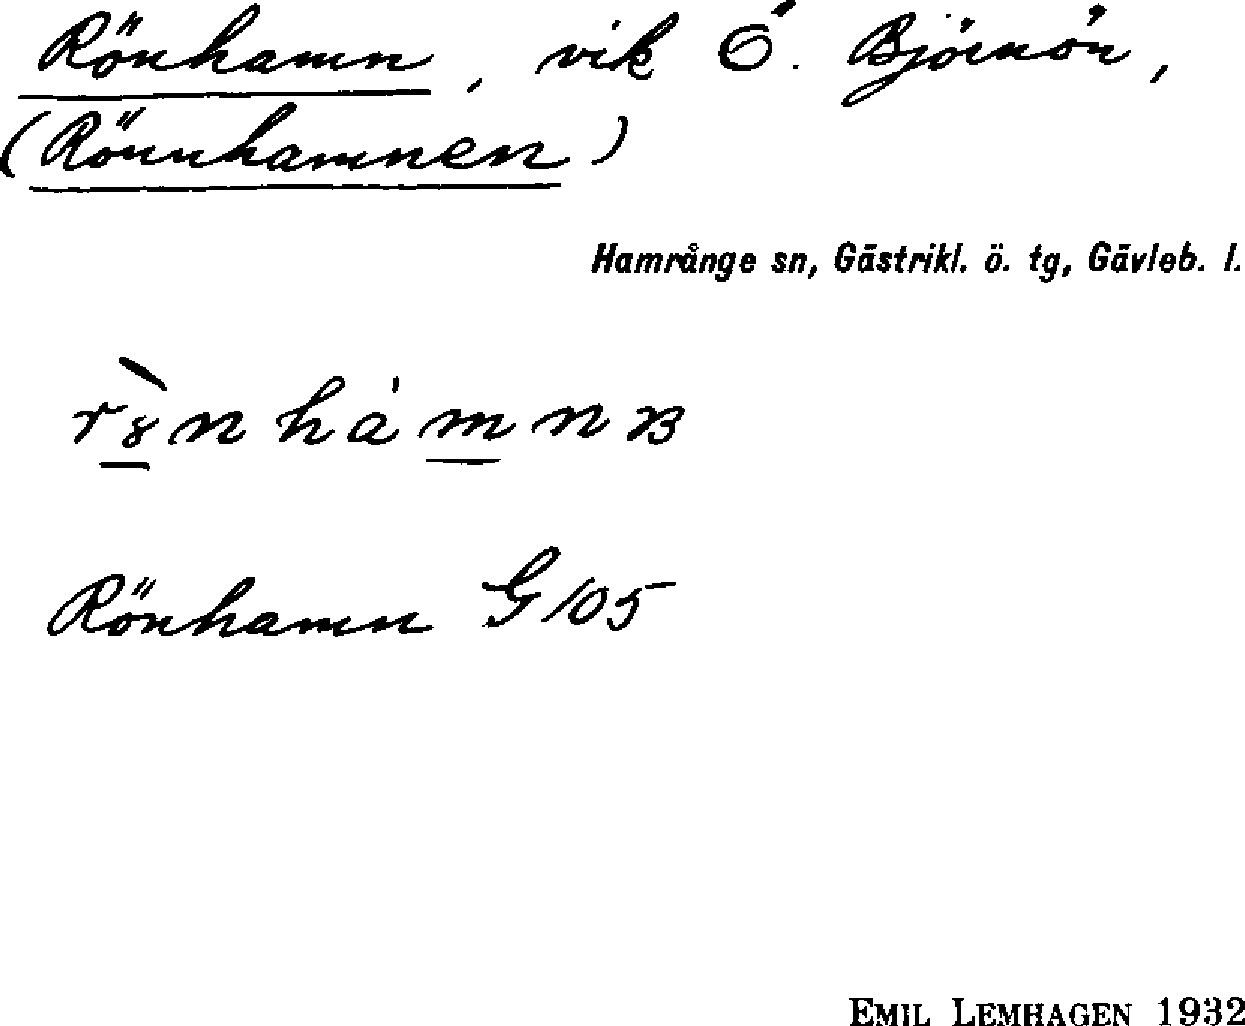 Rönhamn, vik Ö. Björnön,
(Rönnhamnen)
Hamrånge sn, Gästrikl. ö. tg, Gävleb. l.
Rönhamn G 105
EMIL LEMHAGEN 1932